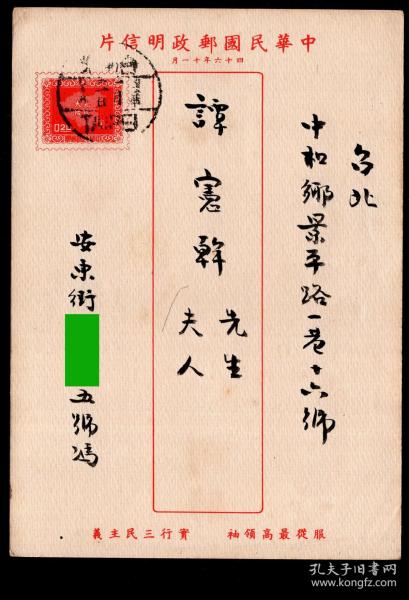 中華民國郵政明信片
四十六年十一月
台北
中和鄉景平路一巷十六號
譚憲幹 先生
夫人
安東街
五號馮
0.20
TAIPEI
服從最高領袖 實行三民主義
孔夫子旧书网
www.kongfz.com